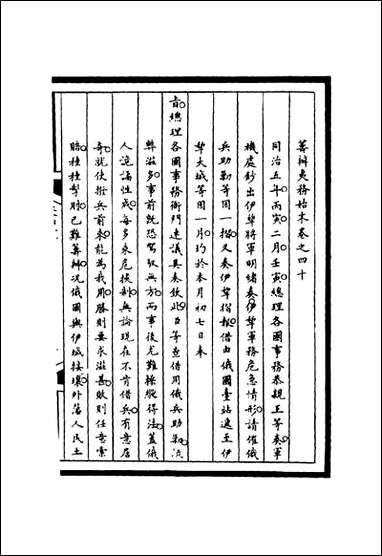 籌辦夷務始末卷之四十
同治五年丙寅二月壬寅總理各國事務恭親王等奏軍
機處鈔出伊犂將軍明緒奏伊犂軍務危急情形請催俄
兵助勦等因一摺又奏伊犂摺報借由俄國臺站遞至伊
犂大城等因一片均於本月初七日奉
旨總理各國事務衙門速議具奏欽此臣等查借用俄兵助勦流
弊滋多事前既恐駕馭無方而事後尤難操縱得法蓋俄
人詭譎性成每多乘危挾制無論現在不肯借兵有意居
奇就使撥兵前來能為我用勝則要求滋甚敗則任意索
賠種種掣肘已難籌辦況俄國與伊城接壤外藩人民土